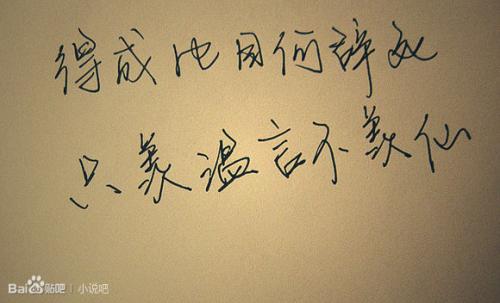 得成比目何辞死
只羡温言不羡仙
Bai贴吧 | 小说吧